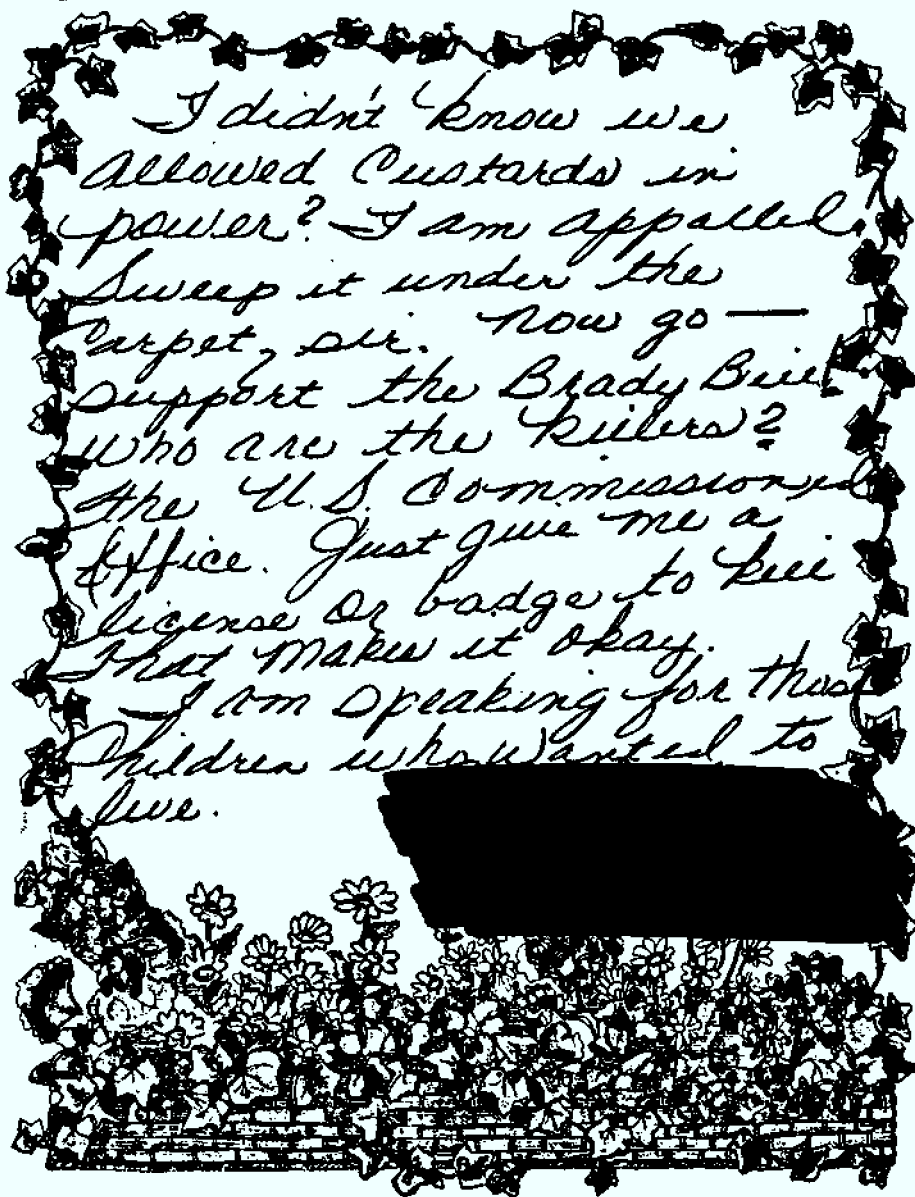 I didn't know we
allowed Custards in
power? I am appalled.
Sweep it under the
carpet, sir. Now go —
support the Brady Bill.
Who are the killers?
the U.S. Commissioner's
Office. Just give me a
license or badge to kill
That makes it okay.
I am speaking for those
children who wanted to
live.